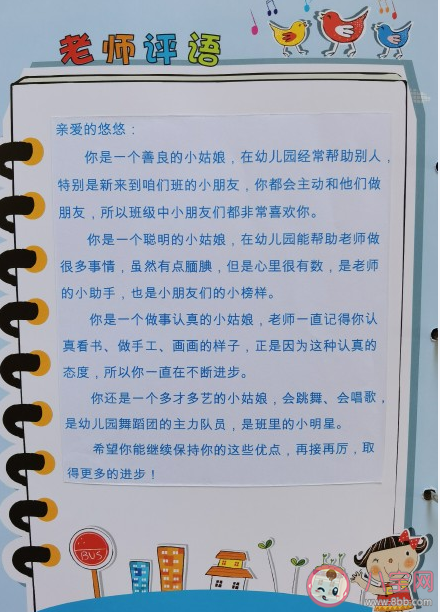 老师评语
亲爱的悠悠：
你是一个善良的小姑娘，在幼儿园经常帮助别人，
特别是新来到咱们班的小朋友，你都会主动和他们做
朋友，所以班级中小朋友们都非常喜欢你。
你是一个聪明的小姑娘，在幼儿园能帮助老师做
很多事情，虽然有点腼腆，但是心里很有数，是老师
的小助手，也是小朋友们的小榜样。
你是一个做事认真的小姑娘，老师一直记得你认
真看书、做手工、画画的样子，正是因为这种认真的
态度，所以你一直在不断进步。
你还是一个多才多艺的小姑娘，会跳舞、会唱歌，
是幼儿园舞蹈团的主力队员，是班里的小明星。
希望你能继续保持你的这些优点，再接再厉，取
得更多的进步！
BUS
八宝网
www.8bb.com